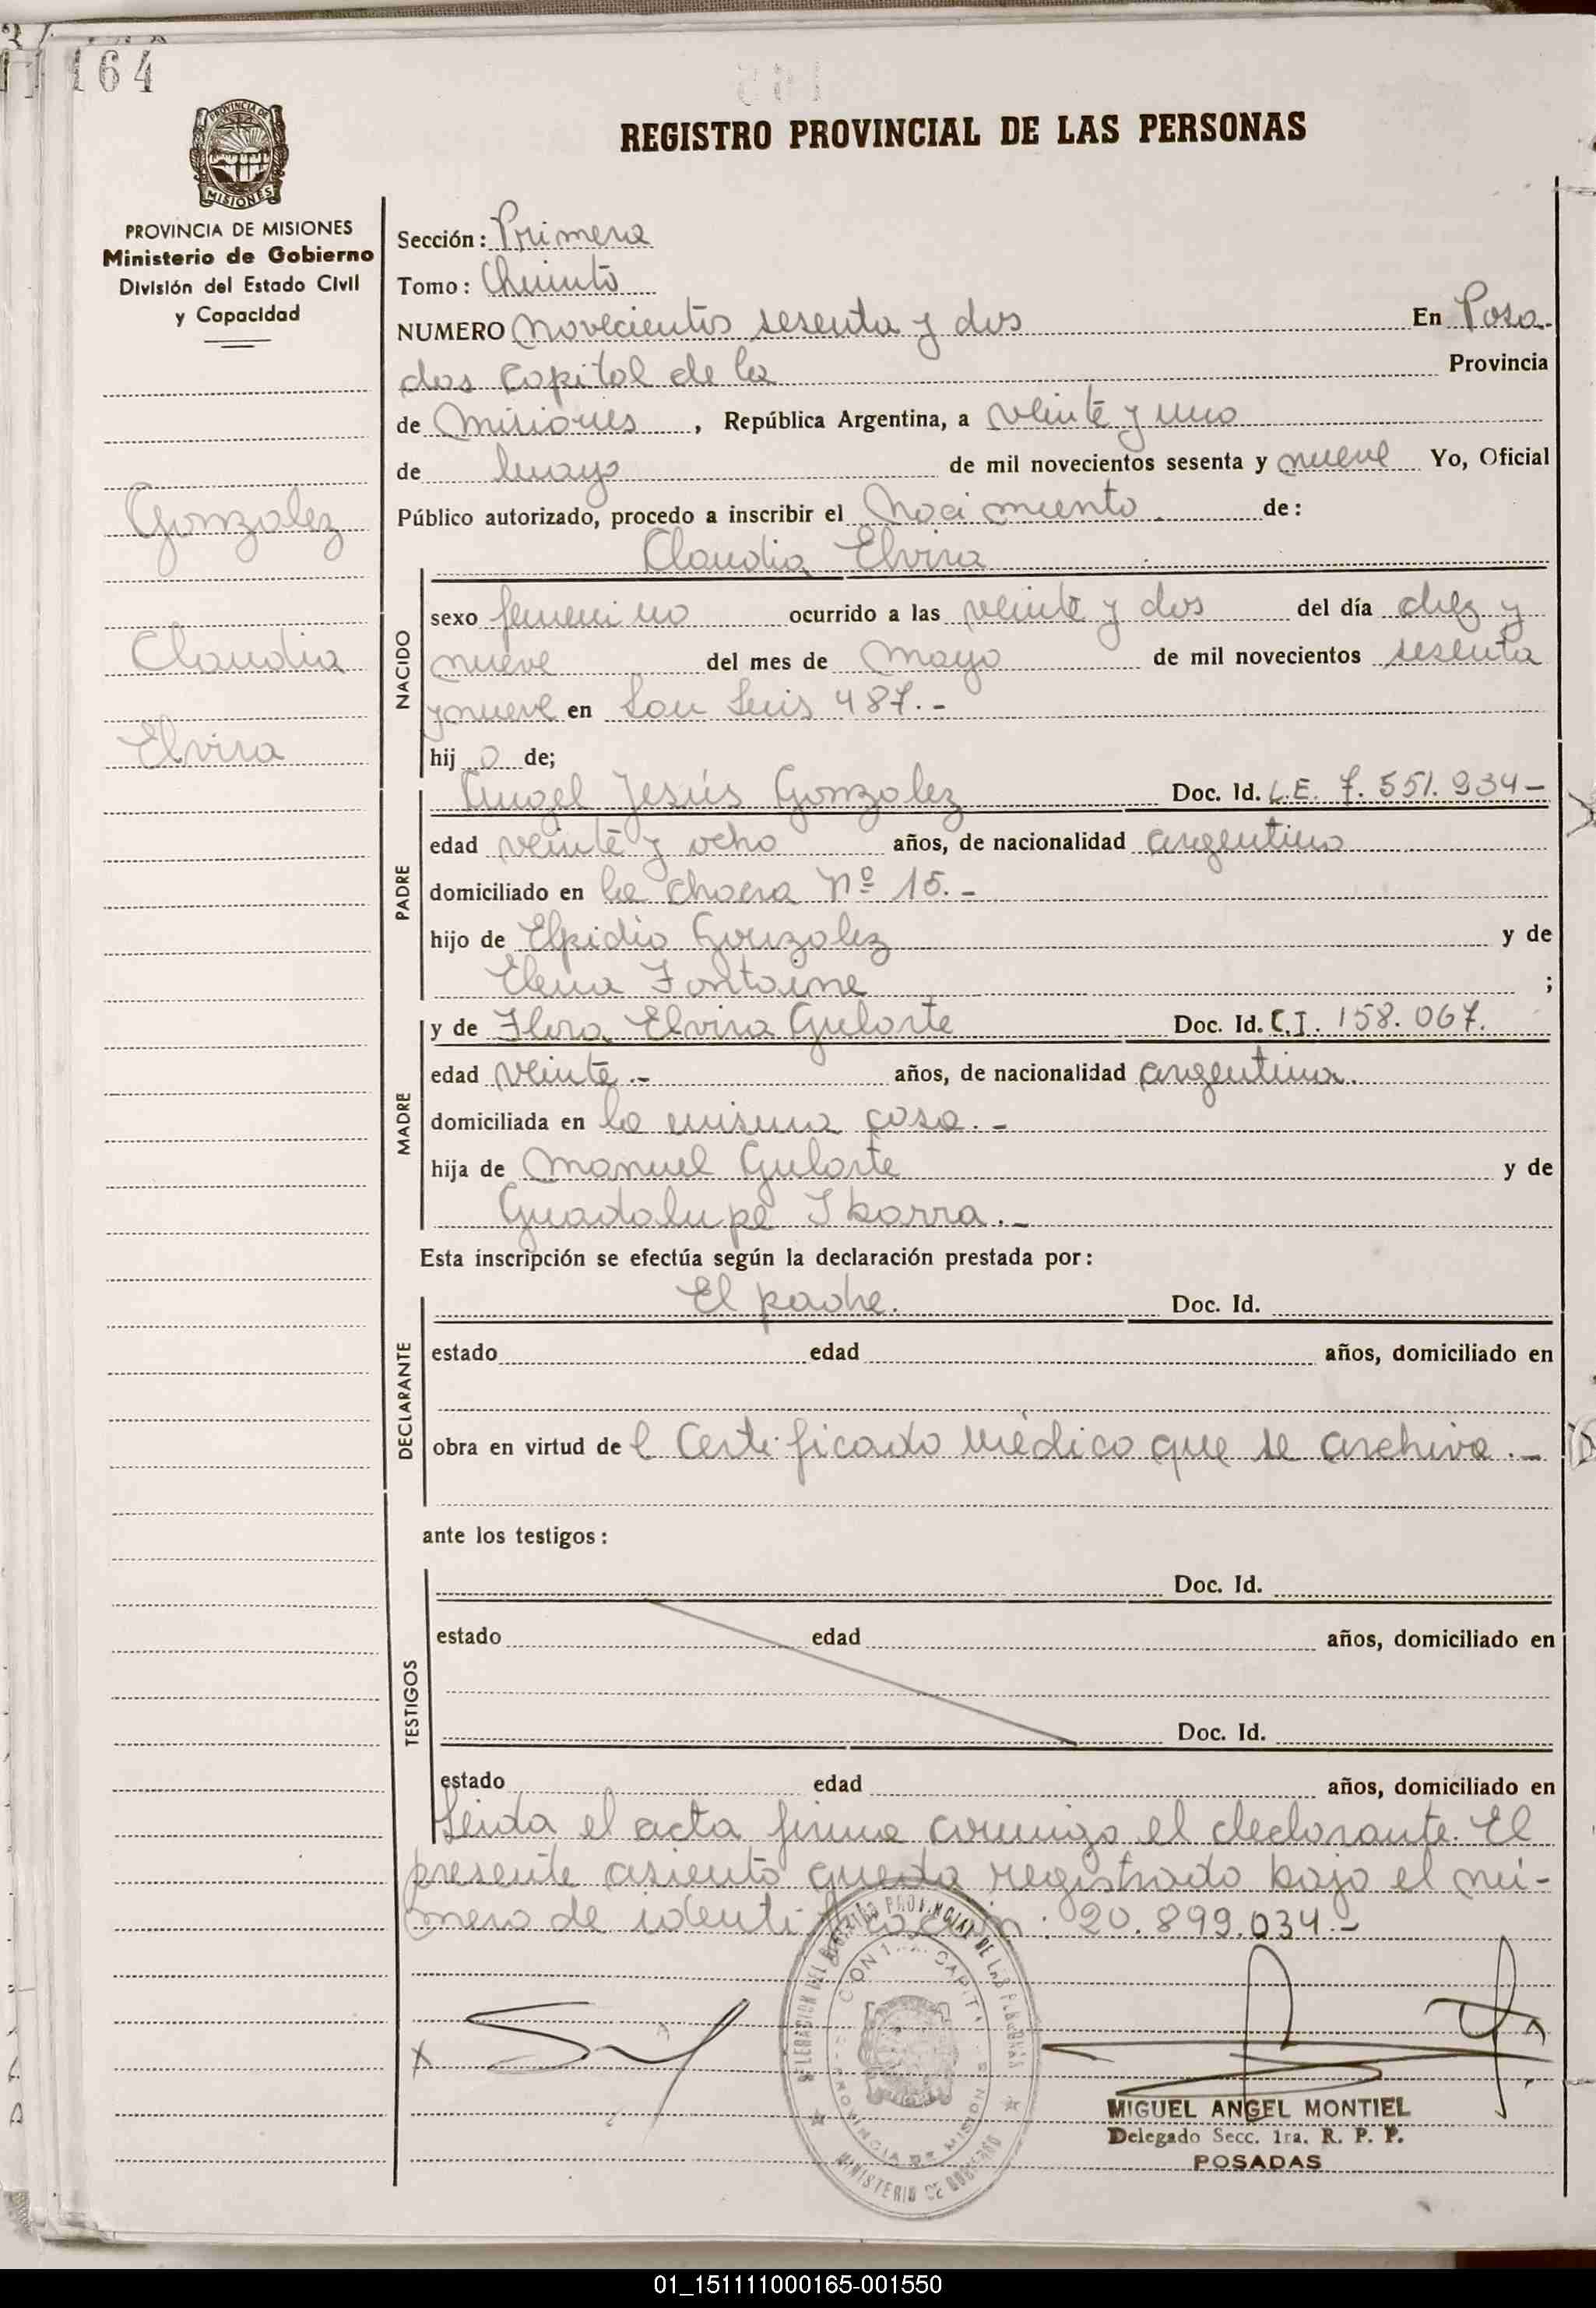 164
REGISTRO PROVINCIAL DE LAS PERSONAS
PROVINCIA DE MISIONES
Ministerio de Gobierno
División del Estado Civil
y Capacidad
Gonzalez
Claudia
Elvira
Sección: Primera
Tomo: Quinto
NUMERO novecientos sesenta y dos En Posa-
das Capital de la Provincia
de Misiones, República Argentina, a veinte y uno
de mayo de mil novecientos sesenta y nueve Yo, Oficial
Público autorizado, procedo a inscribir el Nacimiento de:
Claudia Elvira
NACIDO
sexo femenino ocurrido a las veinte y dos del día diez y
nueve del mes de mayo de mil novecientos sesenta
y nueve en San Luis 487.-
hij a de;
PADRE
Angel Jesús Gonzalez Doc. Id. L.E. 7.551.934-
edad veinte y ocho años, de nacionalidad argentino
domiciliado en la chacra Nº 15.-
hijo de Elpidio Gonzalez y de
Elena Fontaine ;
MADRE
y de Flora Elvira Gularte Doc. Id. C.I. 158.067.
edad veinte.- años, de nacionalidad argentina.
domiciliada en la misma casa.-
hija de Manuel Gularte y de
Guadalupe Ibarra.-
Esta inscripción se efectúa según la declaración prestada por:
DECLARANTE
El padre. Doc. Id.
estado edad años, domiciliado en
obra en virtud de l Certificado médico que se archiva.-
ante los testigos:
TESTIGOS
Doc. Id.
estado edad años, domiciliado en
Doc. Id.
estado edad años, domiciliado en
Leida el acta firma conmigo el declarante. El
presente asiento queda registrado bajo el nú-
mero de identificación: 20.899.034.-
DELEGACION DEL REGISTRO PROVINCIAL DE LAS PERSONAS
PROVINCIA DE MISIONES
MINISTERIO DE GOBIERNO
MIGUEL ANGEL MONTIEL
Delegado Secc. 1ra. R. P. P.
POSADAS
01_151111000165-001550